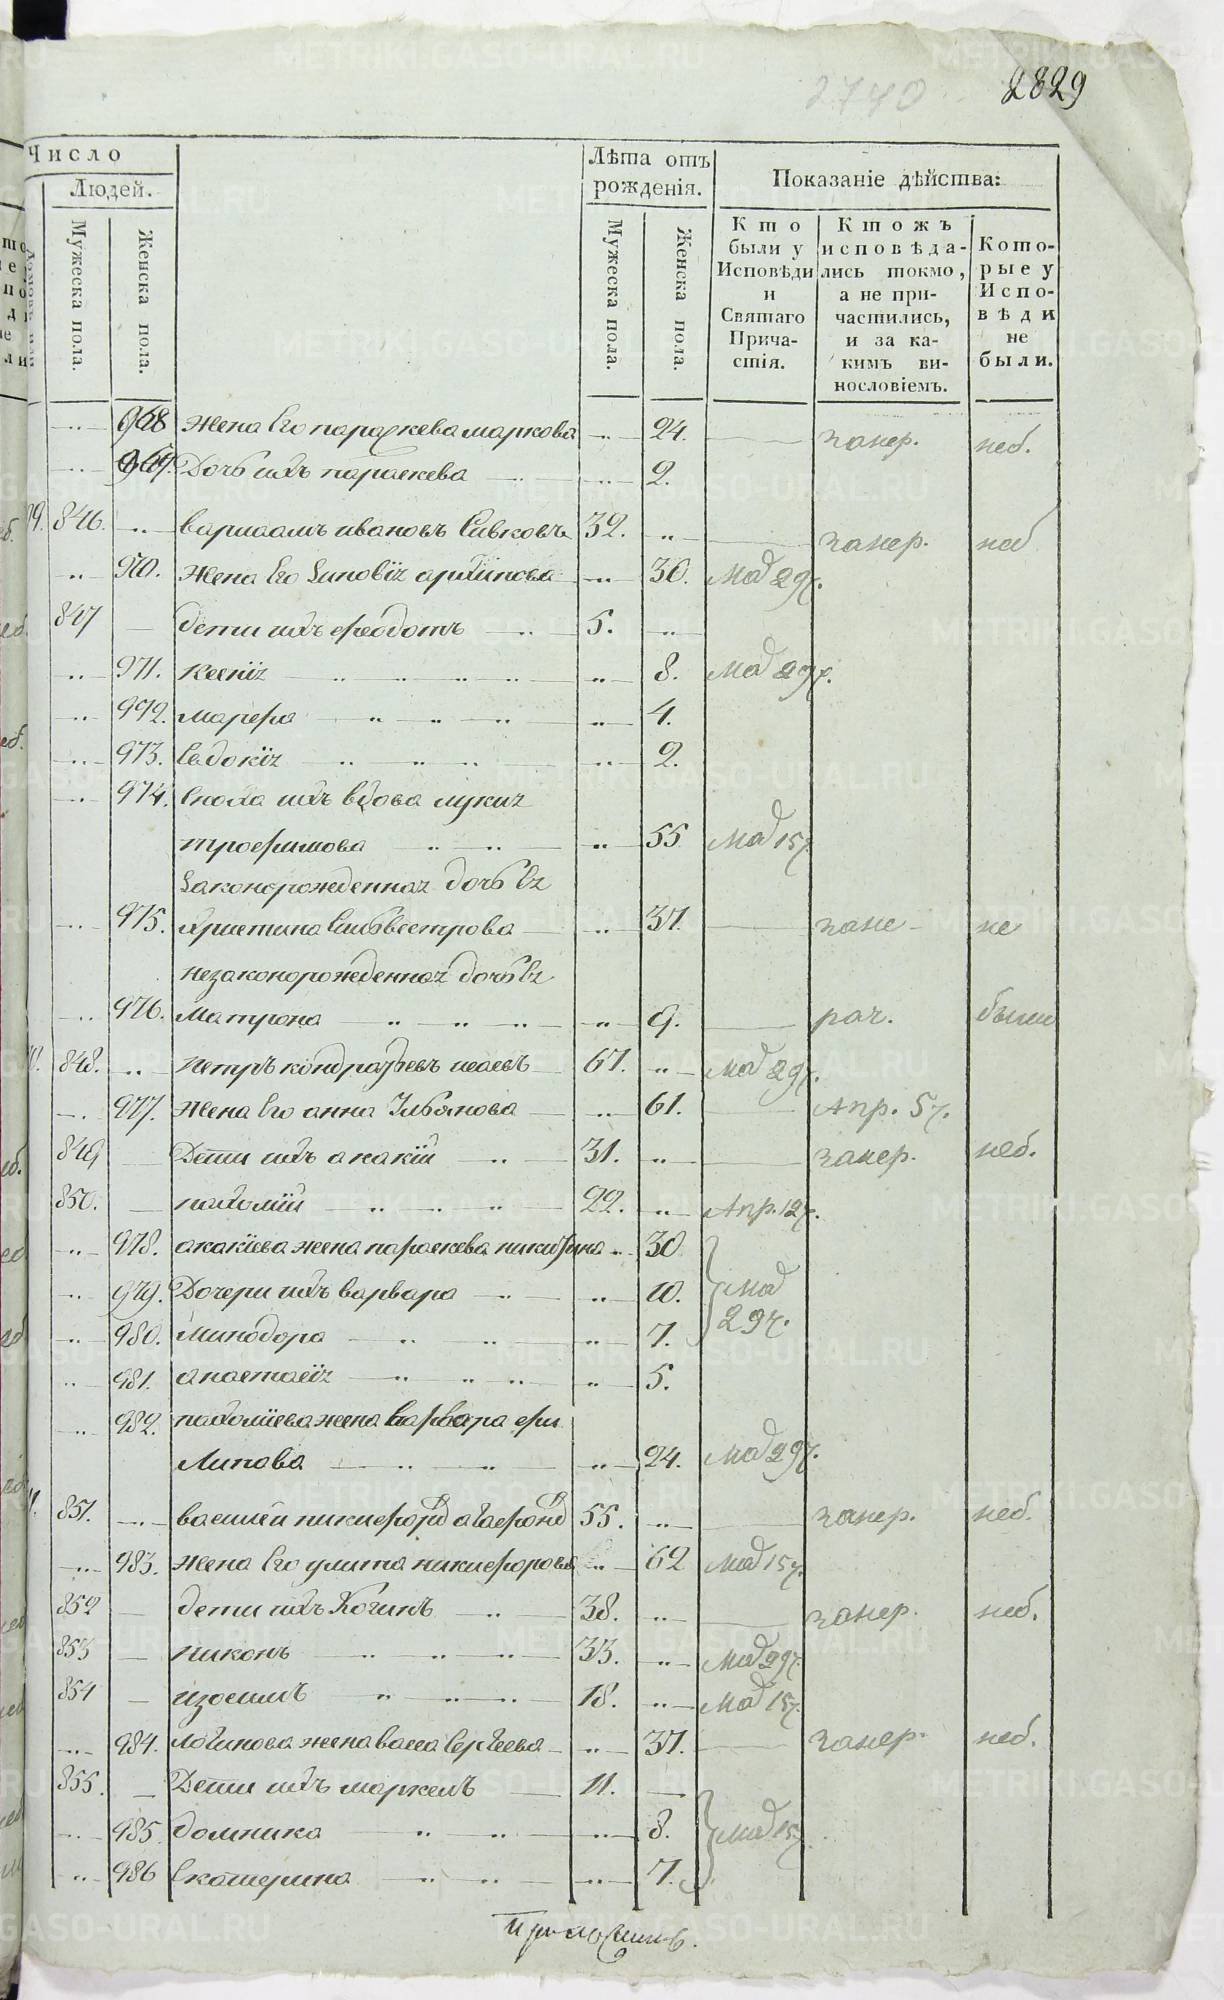 2740
2829
Число
Людей.
Мужеска пола.
Женска пола.
Лѣта отъ рожденія.
Мужеска пола.
Женска пола.
Показаніе дѣйства:
Кто были у Исповѣди и Святаго Причастія.
Ктожъ исповѣдались токмо, а не причастились, и за какимъ винословіемъ.
Которые у Исповѣди не были.
968 жена Его параскева маркова 24. занер. неб.
969. Дочь ихъ параскева 2.
846. варлаамъ ивановъ Сивковъ 32. занер. неб
970. жена Его Зиновія архипова 30. Мад 29ч.
847 дети ихъ феодотъ 5.
971. Ксенія 8. Мад 29ч.
972. марфа 4.
973. Евдокія 2.
974. Сноха ихъ вдова лукия
трофимова 55 Мад 15ч
Законорожденная дочь Ея
975. Христина Сильвестрова 37. зане не
незаконорожденная дочь Ея
976. Матрона 9. рач. были
848. Петръ кондратьевъ исаевъ 67. Мад 29ч.
977. жена Его анна Ульянова 61. Апр. 5ч.
849 Дети ихъ акакій 31. занер. неб.
850. пахомій 22. Апр. 12ч.
978. акакіева жена параскева никитина 30
979. Дочери ихъ варвара 10. Мад
980. Минодора 7. 29ч.
981. анастасія 5.
982. пахоміева жена варвара фи
липова 24. Мад 29ч.
851. василей никифоровъ агафоновъ 55. занер. неб.
983. жена Его улита никифорова 62 Мад 15ч.
852 дети ихъ Логинъ 38. занер. неб.
853 никонъ 33. Мад 29ч.
854 изосимъ 18. Мад 15ч.
984. логинова жена васса Сергеева 37. занер. неб.
855. Дети ихъ маркелъ 11.
985. домника 8. Мад 15ч
986 Екатерина 7.